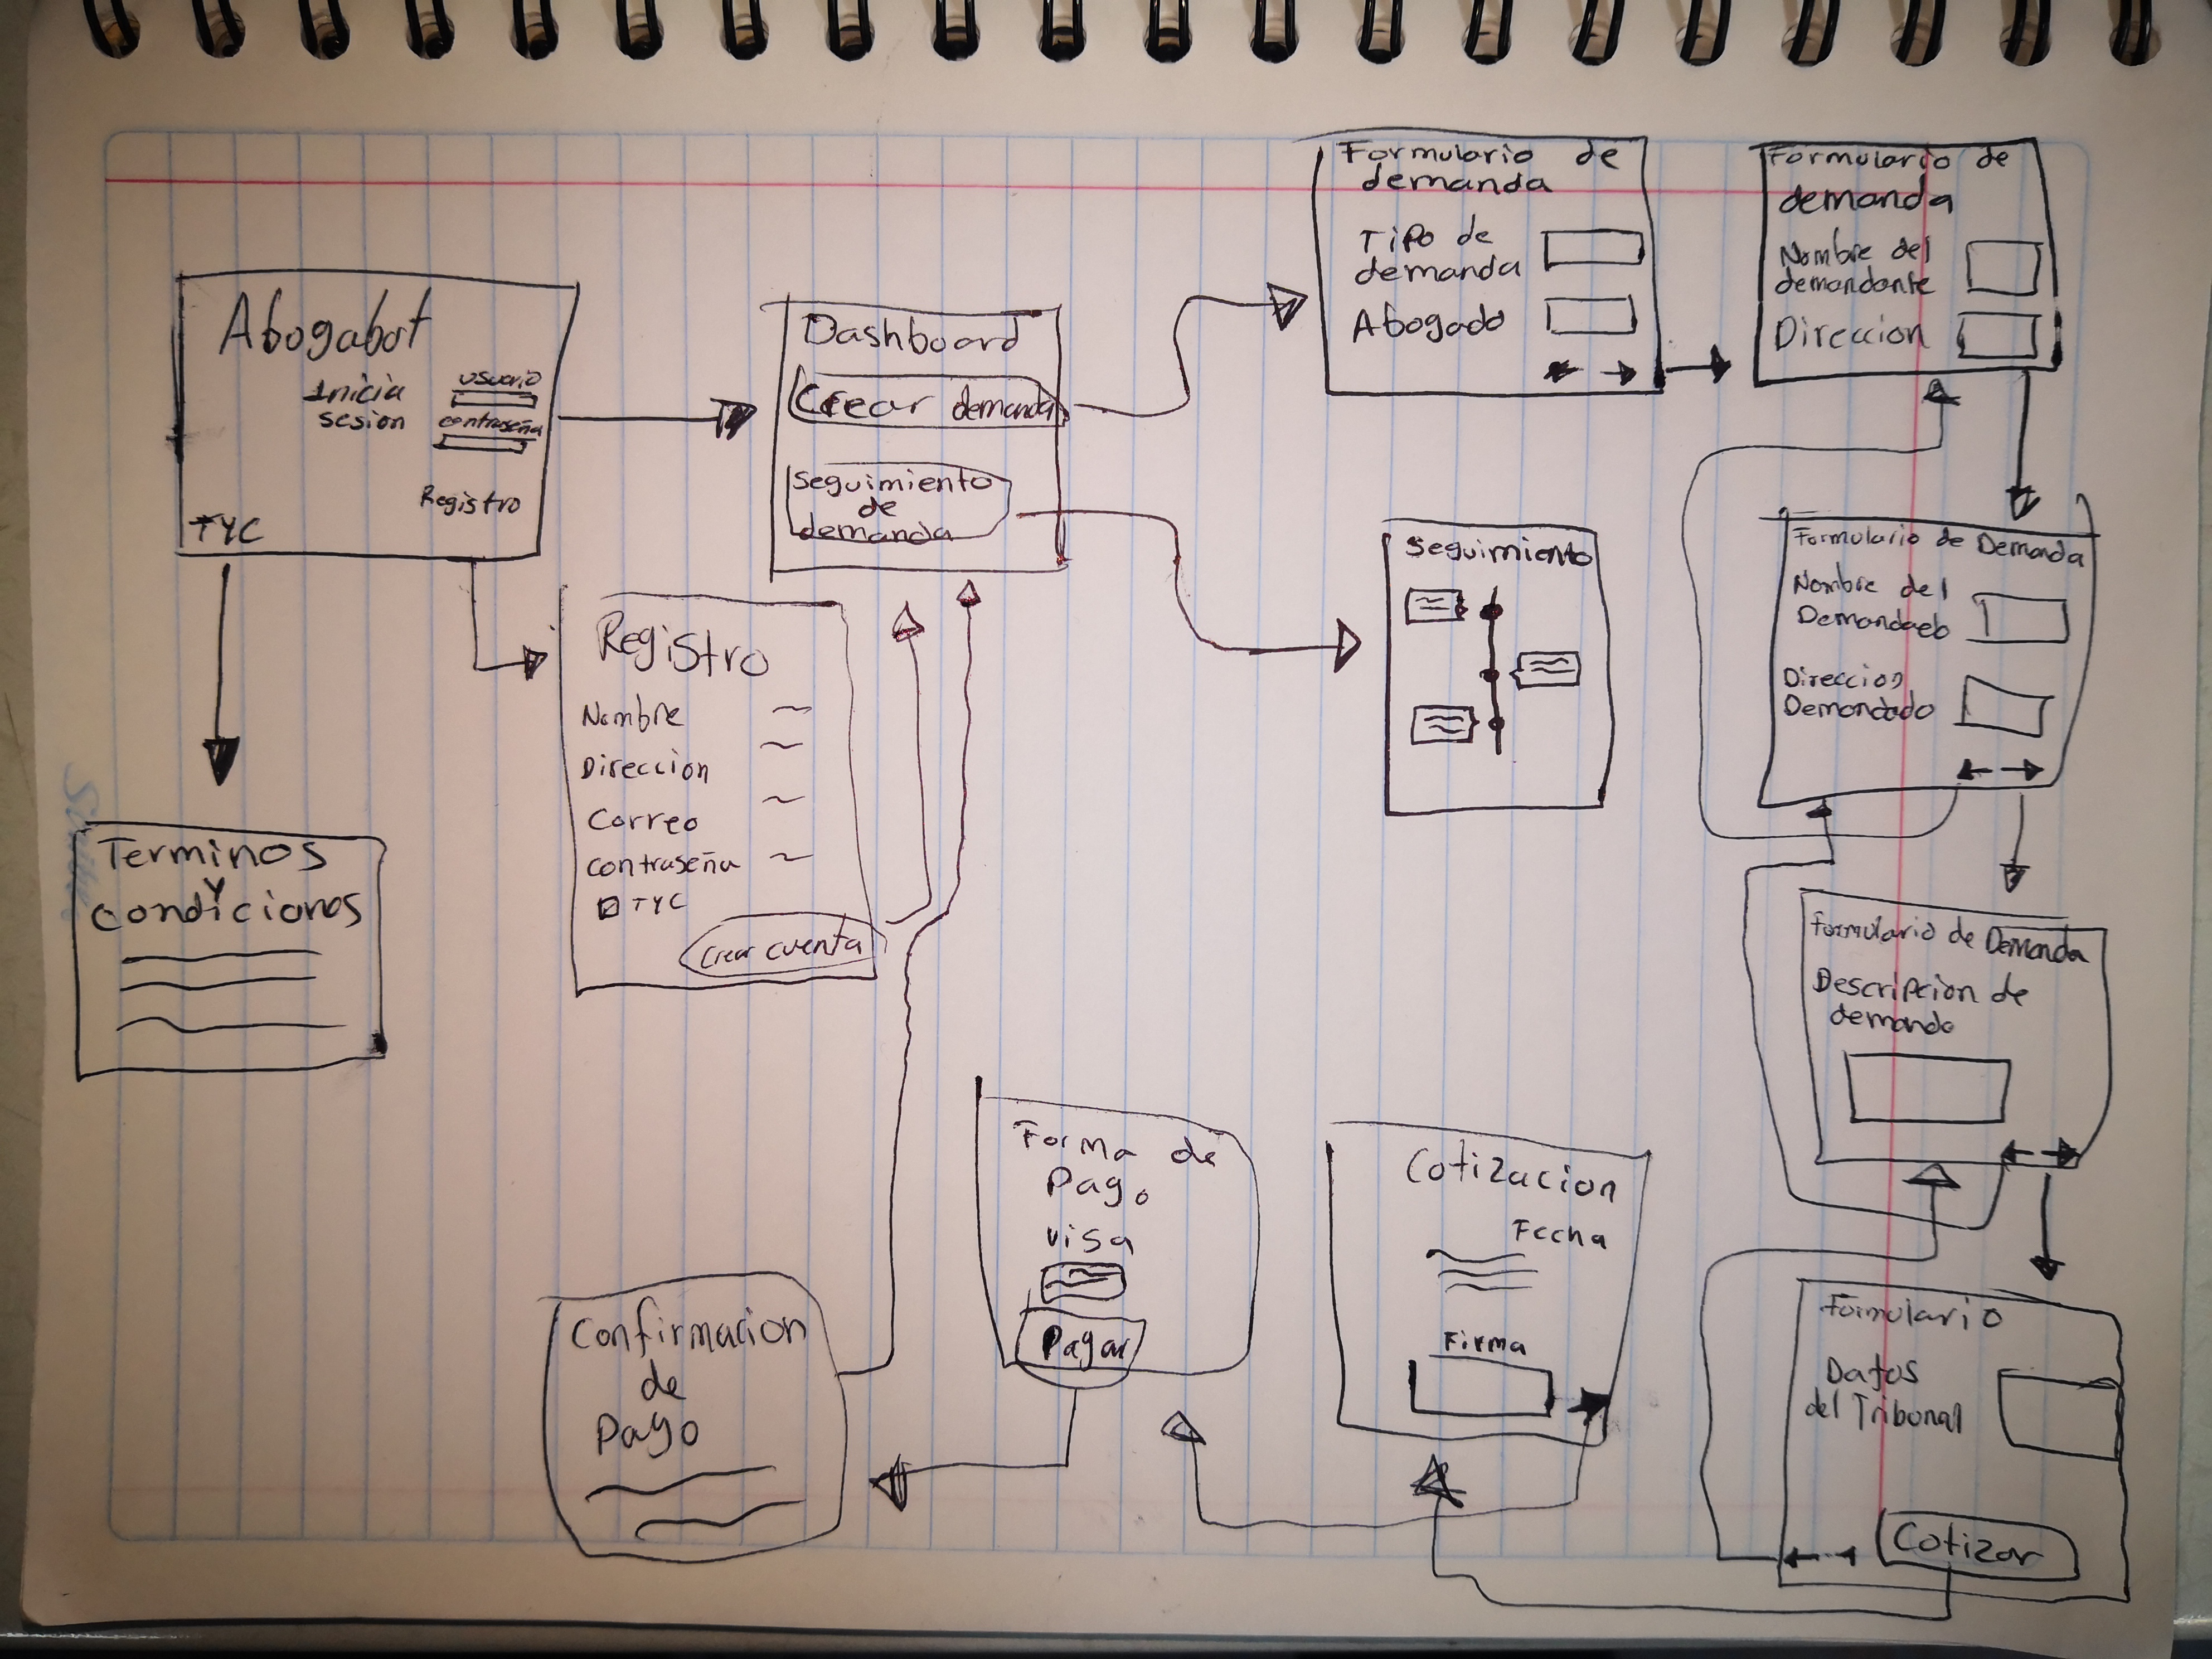 Abogabot
Inicia
sesion
usuario
contraseña
Registro
TYC
Terminos
y
condiciones
Registro
Nombre
Direccion
Correo
contraseña
TYC
Crear cuenta
Dashboard
Crear demanda
seguimiento
de
demanda
Formulario de
demanda
Tipo de
demanda
Abogado
Formulario de
demanda
Nombre del
demandante
Direccion
seguimiento
Formulario de Demanda
Nombre del
Direccion
Demandado
Formulario de Demanda
Descripcion de
demanda
Formulario
Datos
del Tribunal
Cotizar
Cotizacion
Fecha
Firma
Forma de
Pago
visa
Pagar
Confirmacion
de
Pago